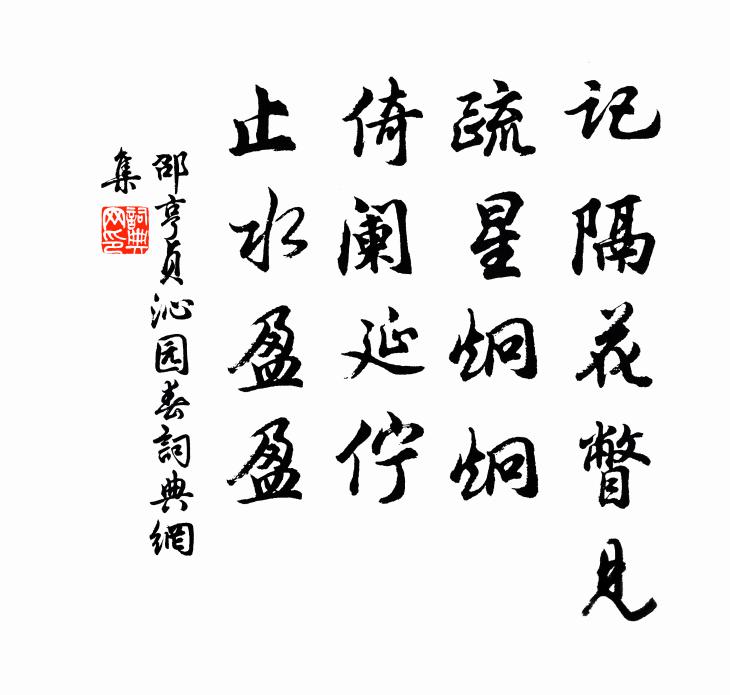 记隔花瞥见
疏星炯炯
倚阑延伫
止水盈盈
邵亨贞沁园春詞典網
集
詞典
网印